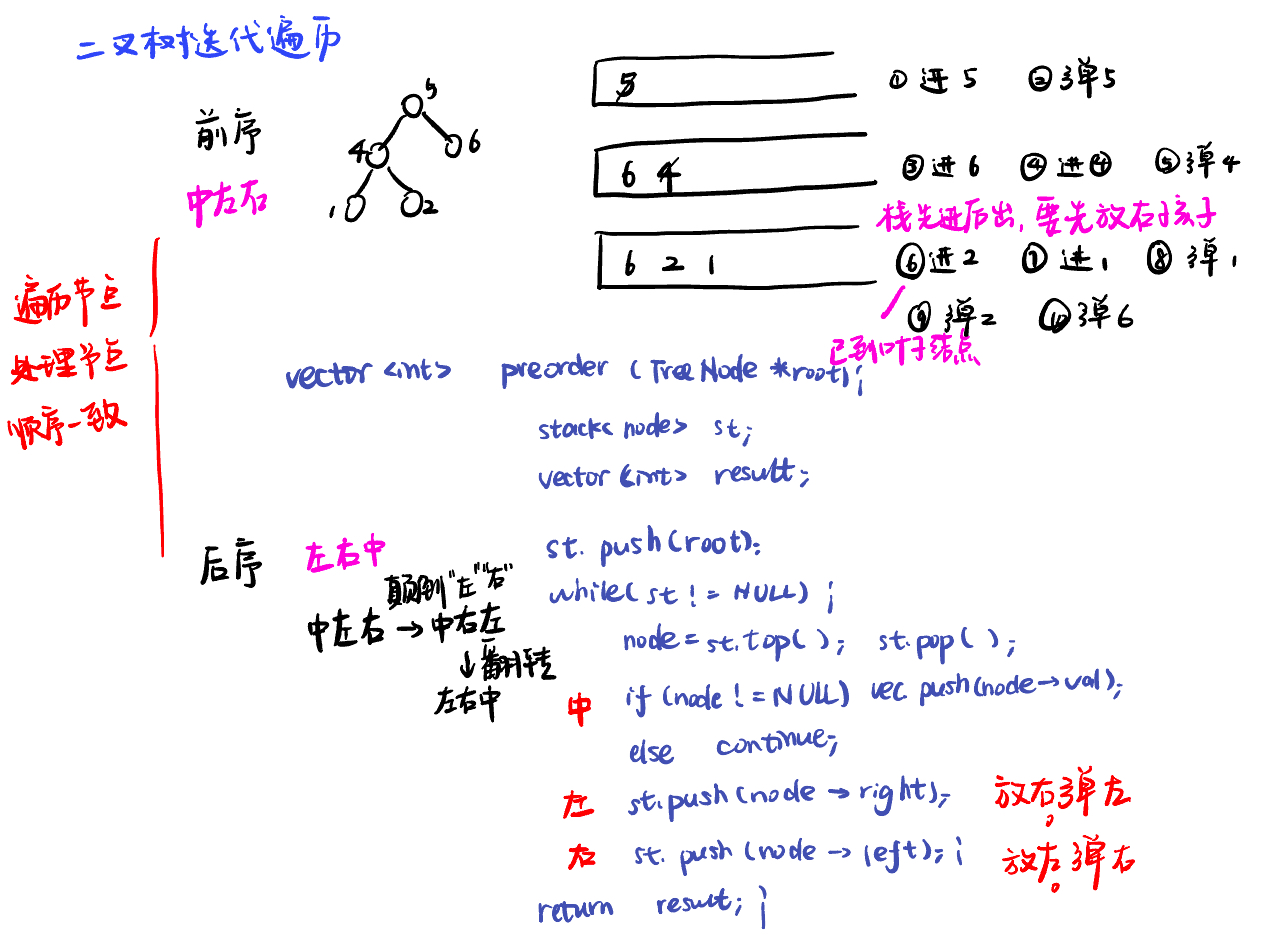 二叉树迭代遍历
前序
中左右
5
4
6
1
2
5
①进5 ②弹5
6 4
③进6 ④进④ ⑤弹4
栈先进后出,要先放右孩子
6 2 1
⑥进2 ⑦进1 ⑧弹1
⑨弹2 ⑩弹6
已到叶子结点
遍历节点
处理节点
顺序一致
vector <int> preorder (TreeNode *root);
stack< node> st;
vector <int> result;
st. push(root);
while( st != NULL) {
node = st.top( ); st.pop( );
中 if (node != NULL) vec push(node→val);
else continue;
左 st.push (node → right); 放右弹左
右 st. push (node → left); } 放左弹右
return result; }
后序 左右中
颠倒"左""右"
中左右 → 中右左
↓翻转
左右中